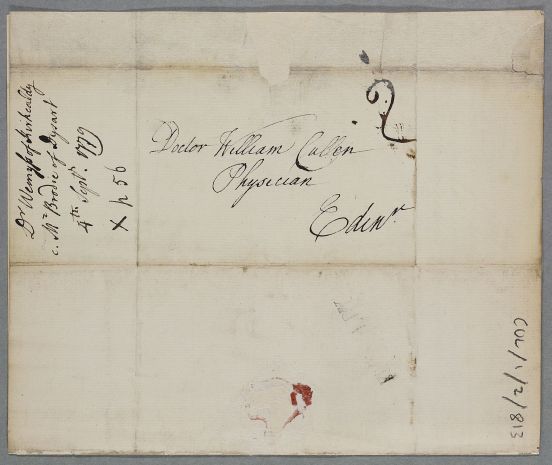 Dr Wemyss of Kirkcaldy
c. Mr Brodie of Dysart
4th Septr. 1779
X p 56
2
Doctor William Cullen
Physician
Edinr.
CUL/1/2/813